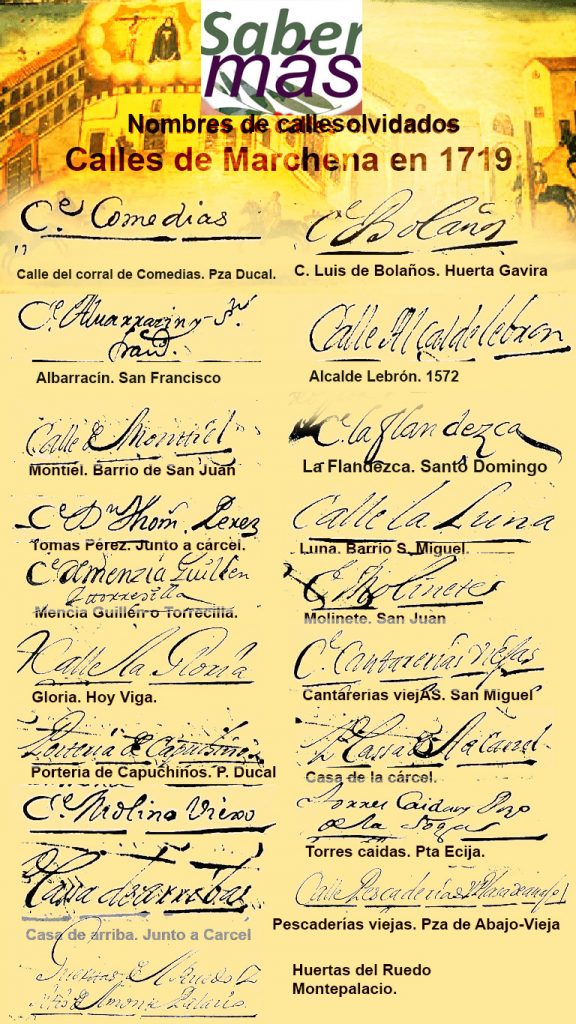 Saber
más
Nombres de callesolvidados
Calles de Marchena en 1719
Ce. Comedias
Calle del corral de Comedias. Pza Ducal.
Ce. Bolaños
C. Luis de Bolaños. Huerta Gavira
Albarracín. San Francisco
Calle Alcalde lebron
Alcalde Lebrón. 1572
Calle de Montiel
Montiel. Barrio de San Juan
Ce. la flandezca
La Flandezca. Santo Domingo
Ce. Dn Thom. Perez
Tomas Pérez. Junto a cárcel.
Calle la Luna
Luna. Barrio S. Miguel
Ce. Menzia Guillen
Mencia Guillén o Torrecilla.
Ce. Molinetes
Molinete. San Juan
Calle la Gloria
Gloria. Hoy Viga.
Ce. Cantarerias Viejas
Cantarerias viejAS. San Miguel
Porteria de Capuchinos
Porteria de Capuchinos. P. Ducal
Cassa de la Carcel
Casa de la cárcel.
Ce. Molino Viexo
Torres Caidas Pozo
de la Soga
Torres caidas. Pta Ecija.
Casa de arriba. Junto a Carcel
Calle Pescaderias
Pescaderías viejas. Pza de Abajo-Vieja
Huertas del Ruedo
Montepalacio.